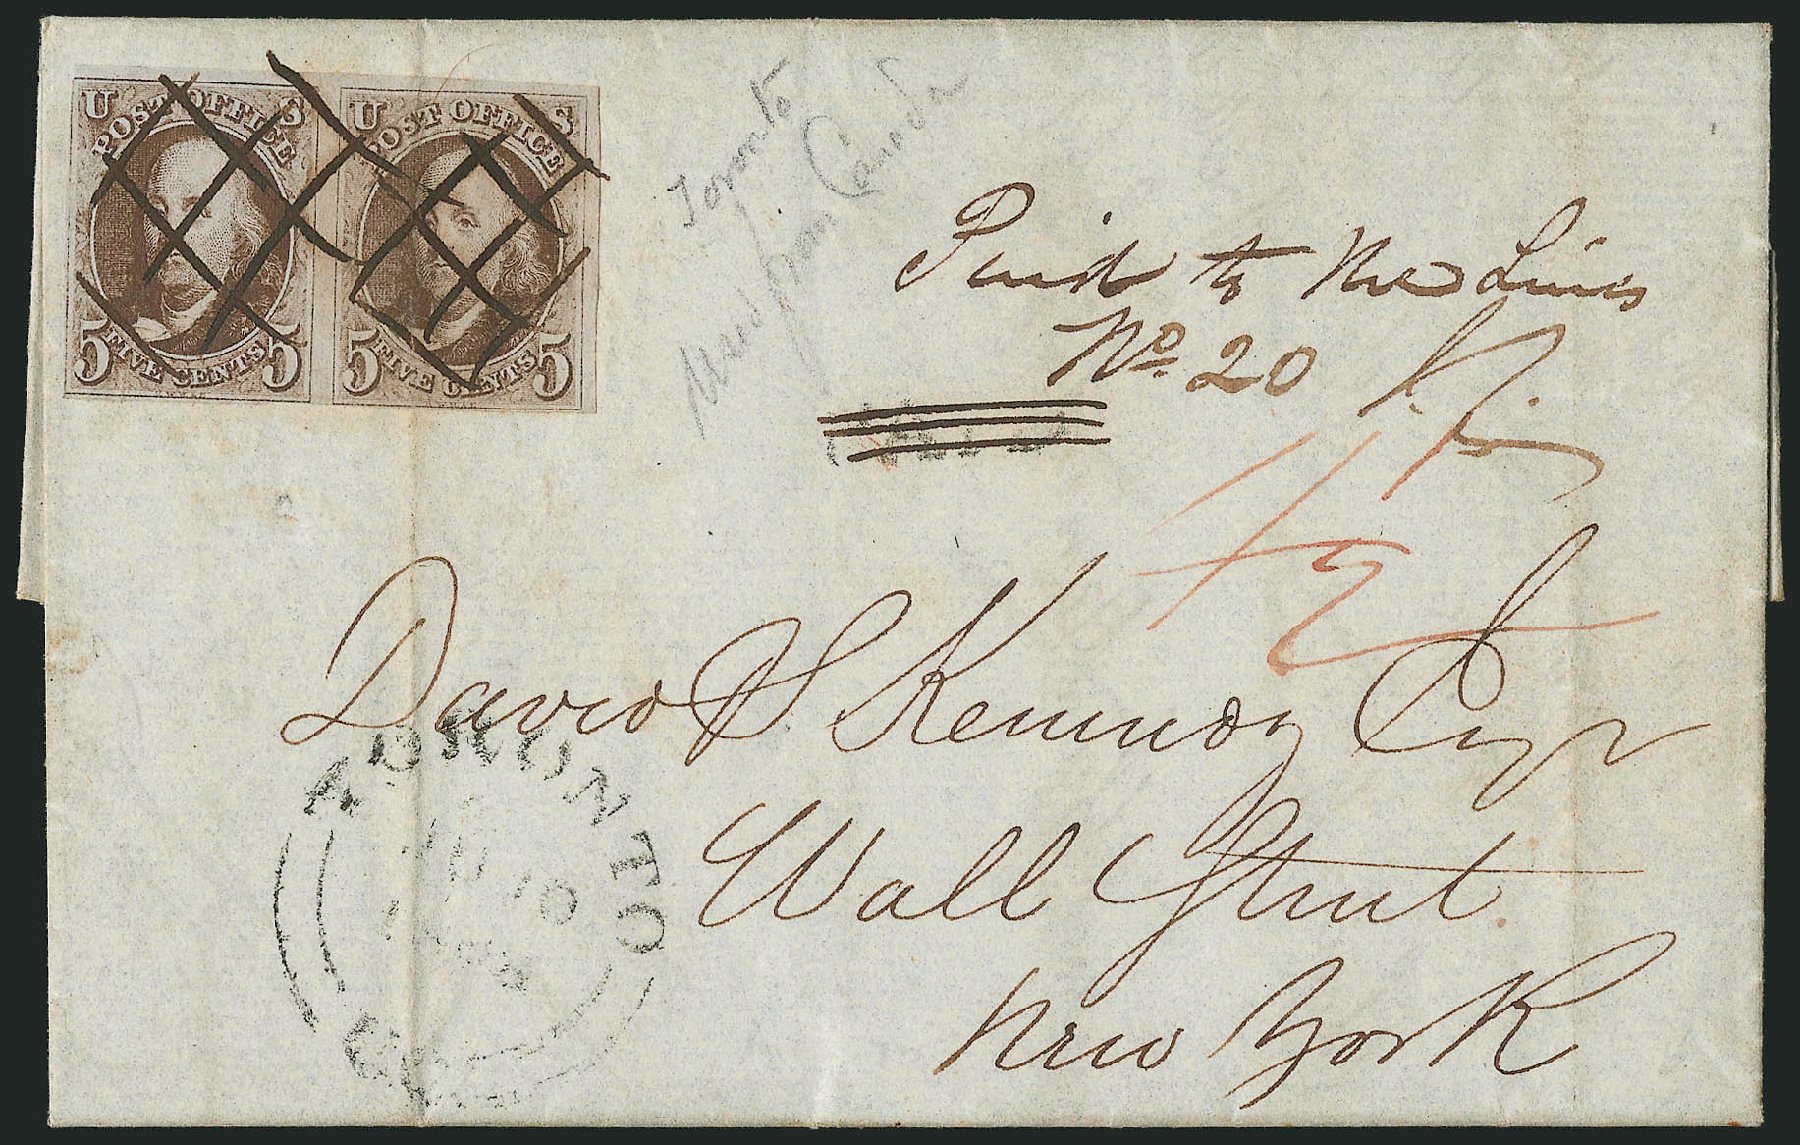 U S
POST OFFICE
5 FIVE CENTS 5
U S
POST OFFICE
5 FIVE CENTS 5
Toronto
Used from Canada
Paid to the Lines
No. 20
PAID
4½
David S Kennedy Esqr
Wall Street
New York
TORONTO